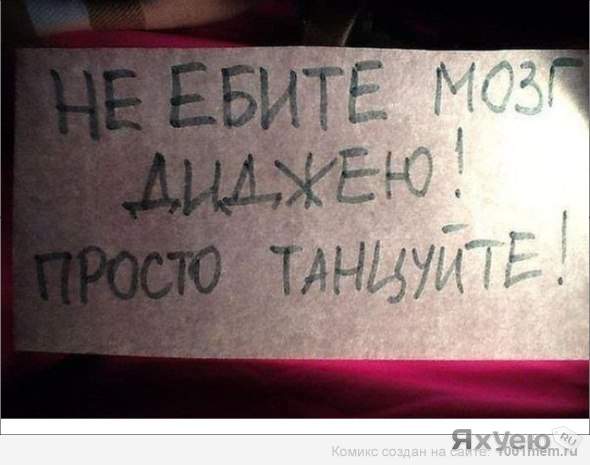 НЕ ЕБИТЕ МОЗГ
ДИДЖЕЮ!
ПРОСТО ТАНЦУЙТЕ!
ЯхУею.RU
Комикс создан на сайте: 1001mem.ru